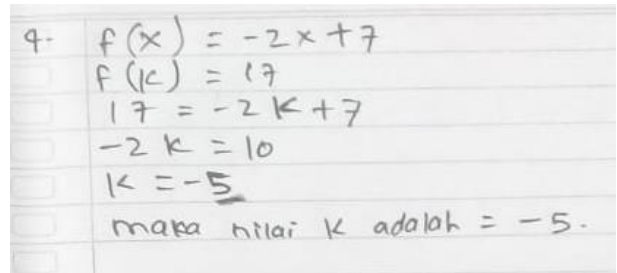 4. f(x) = -2x+7
f(k) = 17
17 = -2k+7
-2k = 10
k = -5
maka nilai k adalah = -5.